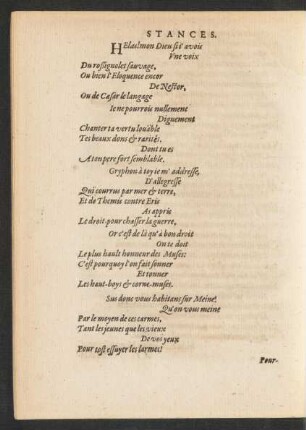 STANCES.
HElas! mon Dieu si i' auoie
Vne voix
Du rossignolet sauuage,
Ou bien l'Eloquence encor
De Nestor,
Ou de Cesar le langage
Ie ne pourroie nullement
Dignement
Chanter ta vertu louëble
Tes beaux dons & rarités,
Dont tu es
A ton pere fort semblable.
Gryphon à toy ie m' addresse,
D'allegresse
Qui courrus par mer & terre,
Et de Themis contre Eris
As appris
Le droit, pour chasser la guerre,
Or c'est de là qu'à bon droit
On te doit
Le plus hault honneur des Muses:
C'est pourquoy l'on fait sonner
Et tonner
Les haut-boys & corne-muses.
Sus donc vous habitans sur Meine,
Qu'on vous meine
Par le moyen de ces carmes,
Tant les jeunes que les vieux
De vos yeux
Pour tost essuyer les larmes:
Pour-